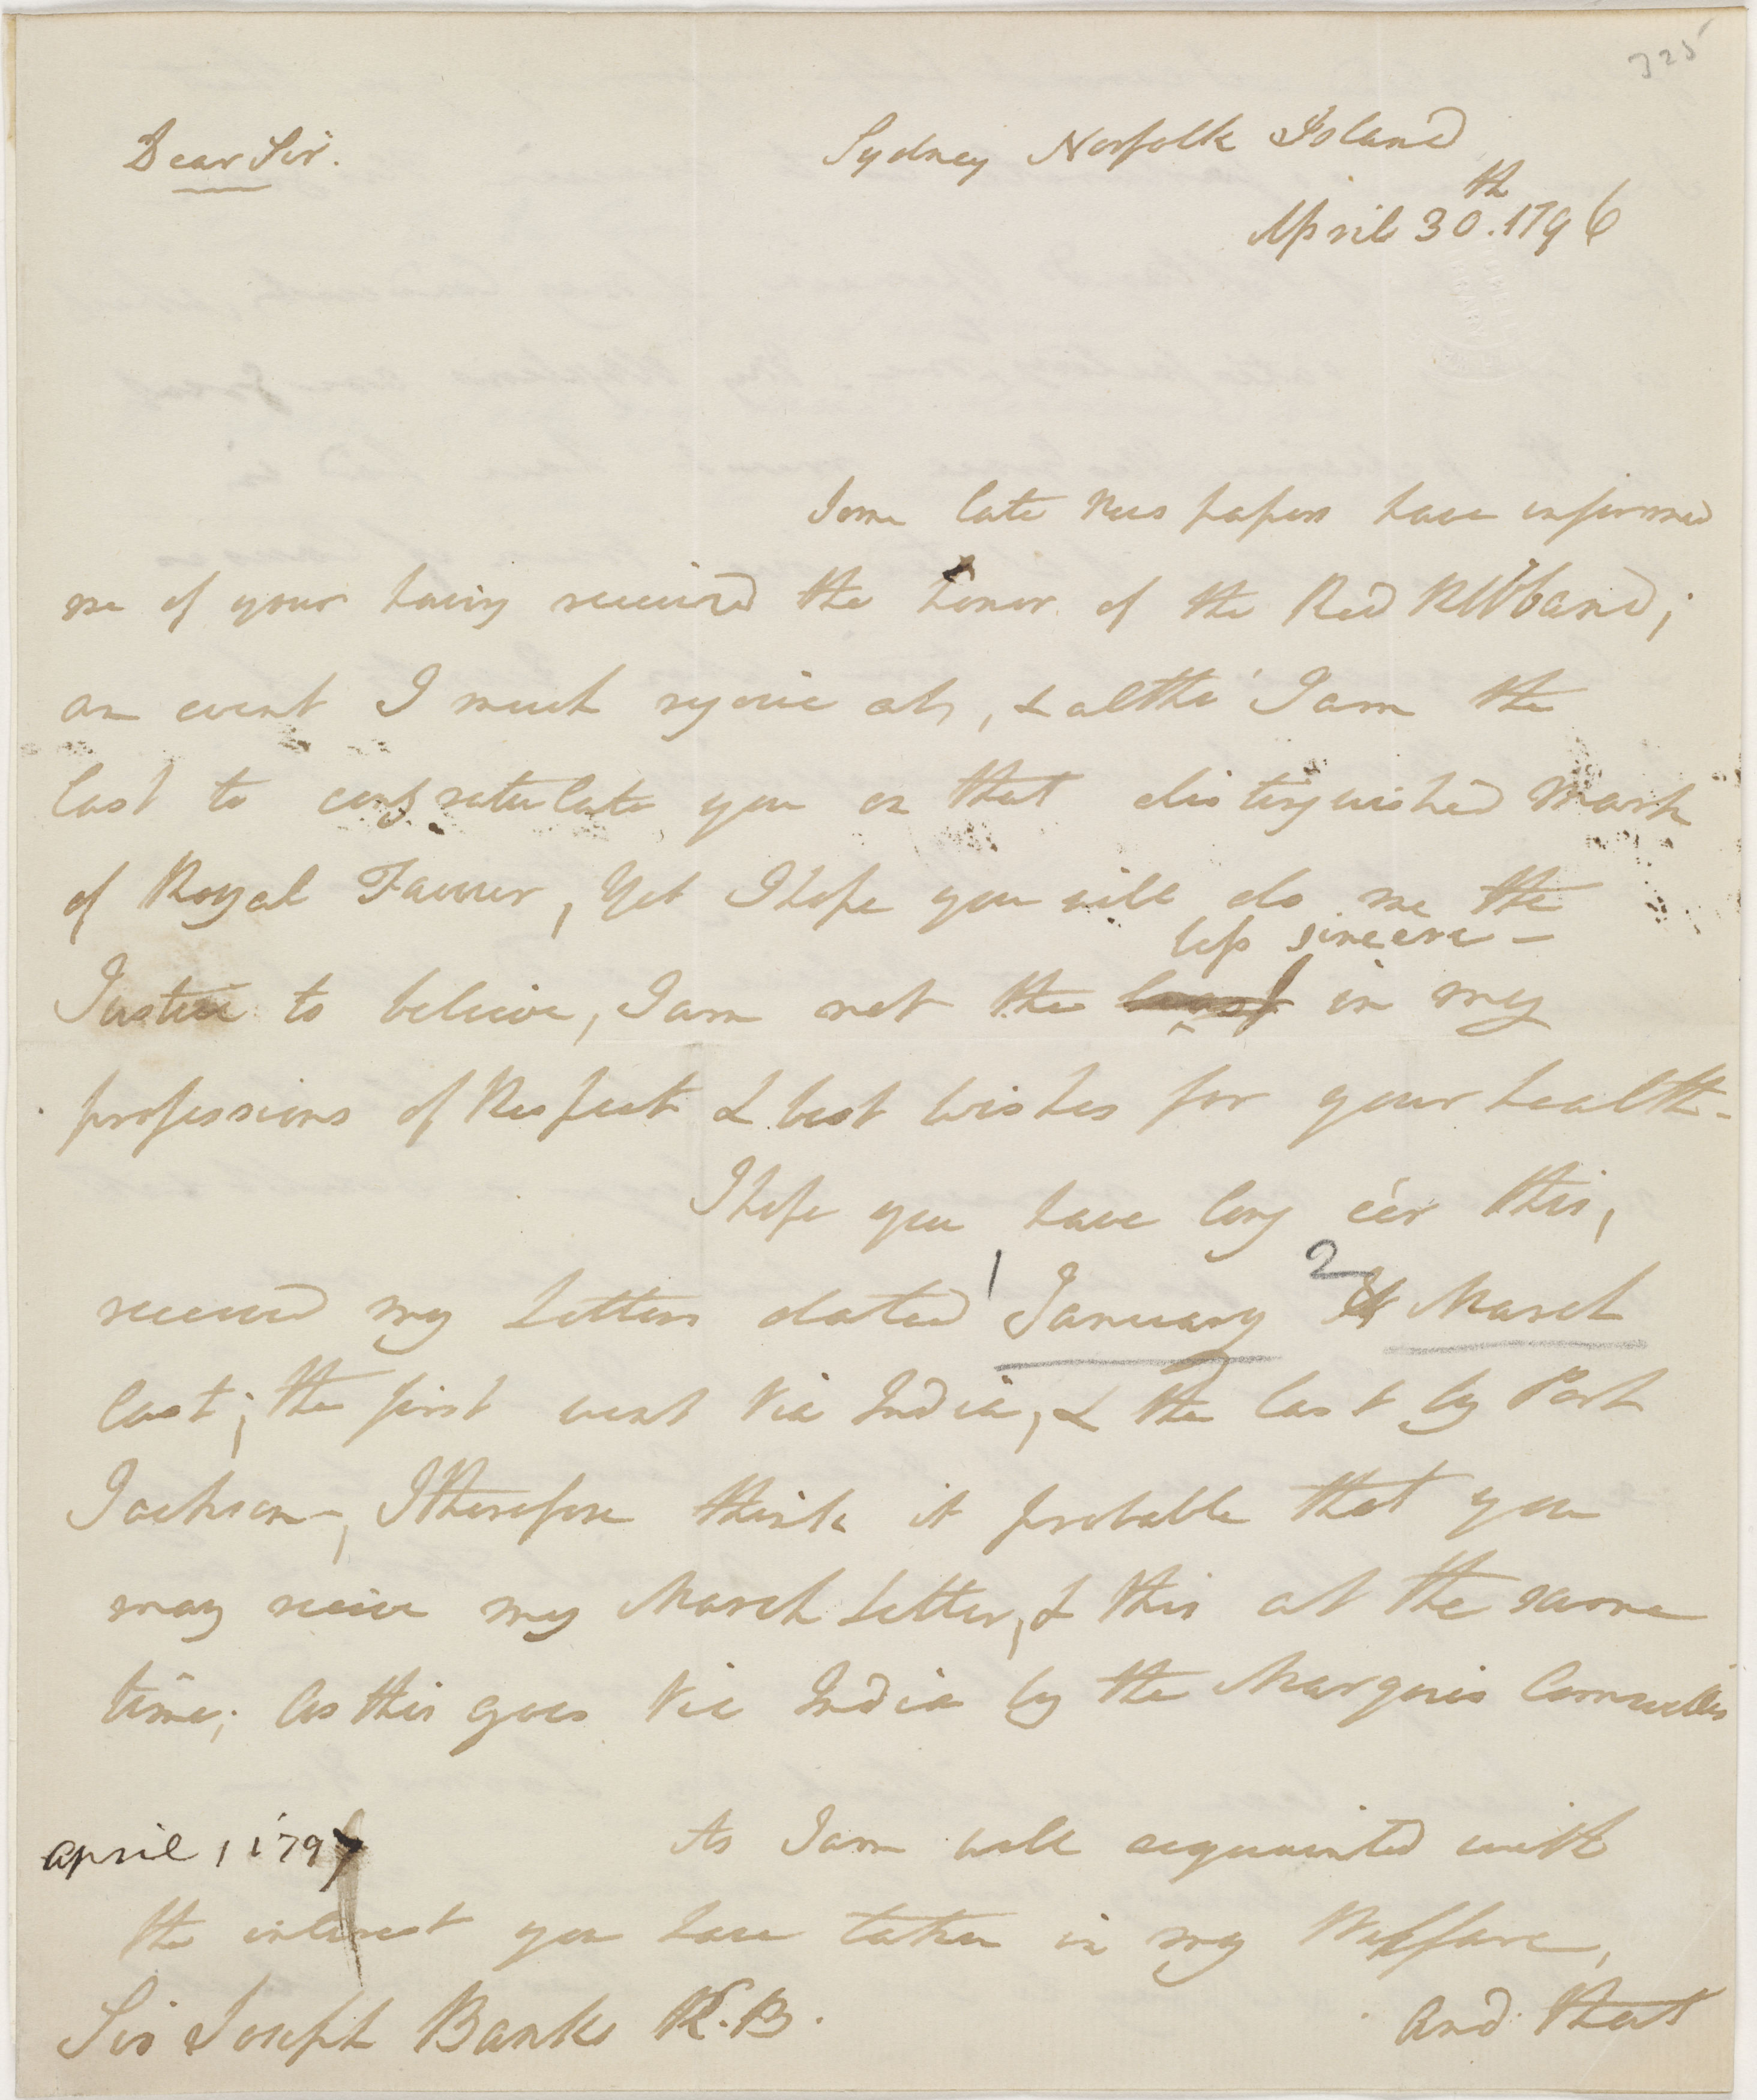 325
Dear Sir.
Sydney Norfolk Island
April 30th. 1796
Some late News papers have informed
me of your having received the honor of the Red Ribband;
an event I much rejoice at, & altho' I am the
last to congratulate you on that distinguished Mark
of Royal Favour, Yet I hope you will do me the
less sincere -
Justice to believe, I am not the least in my
professions of Respect & best wishes for your health -
I hope you have long e'er this,
1 2
received my Letters dated January & March
last; the first went Via India, & the last by Port
Jackson -, I therefore think it probable that you
may receive my March Letter, & this at the same
time; As this goes Via India by the Marquis Cornwallis
As I am well acquainted with
April, 1797
the interest you have taken in my Wellfare,
Sir Joseph Banks K.B.
and that